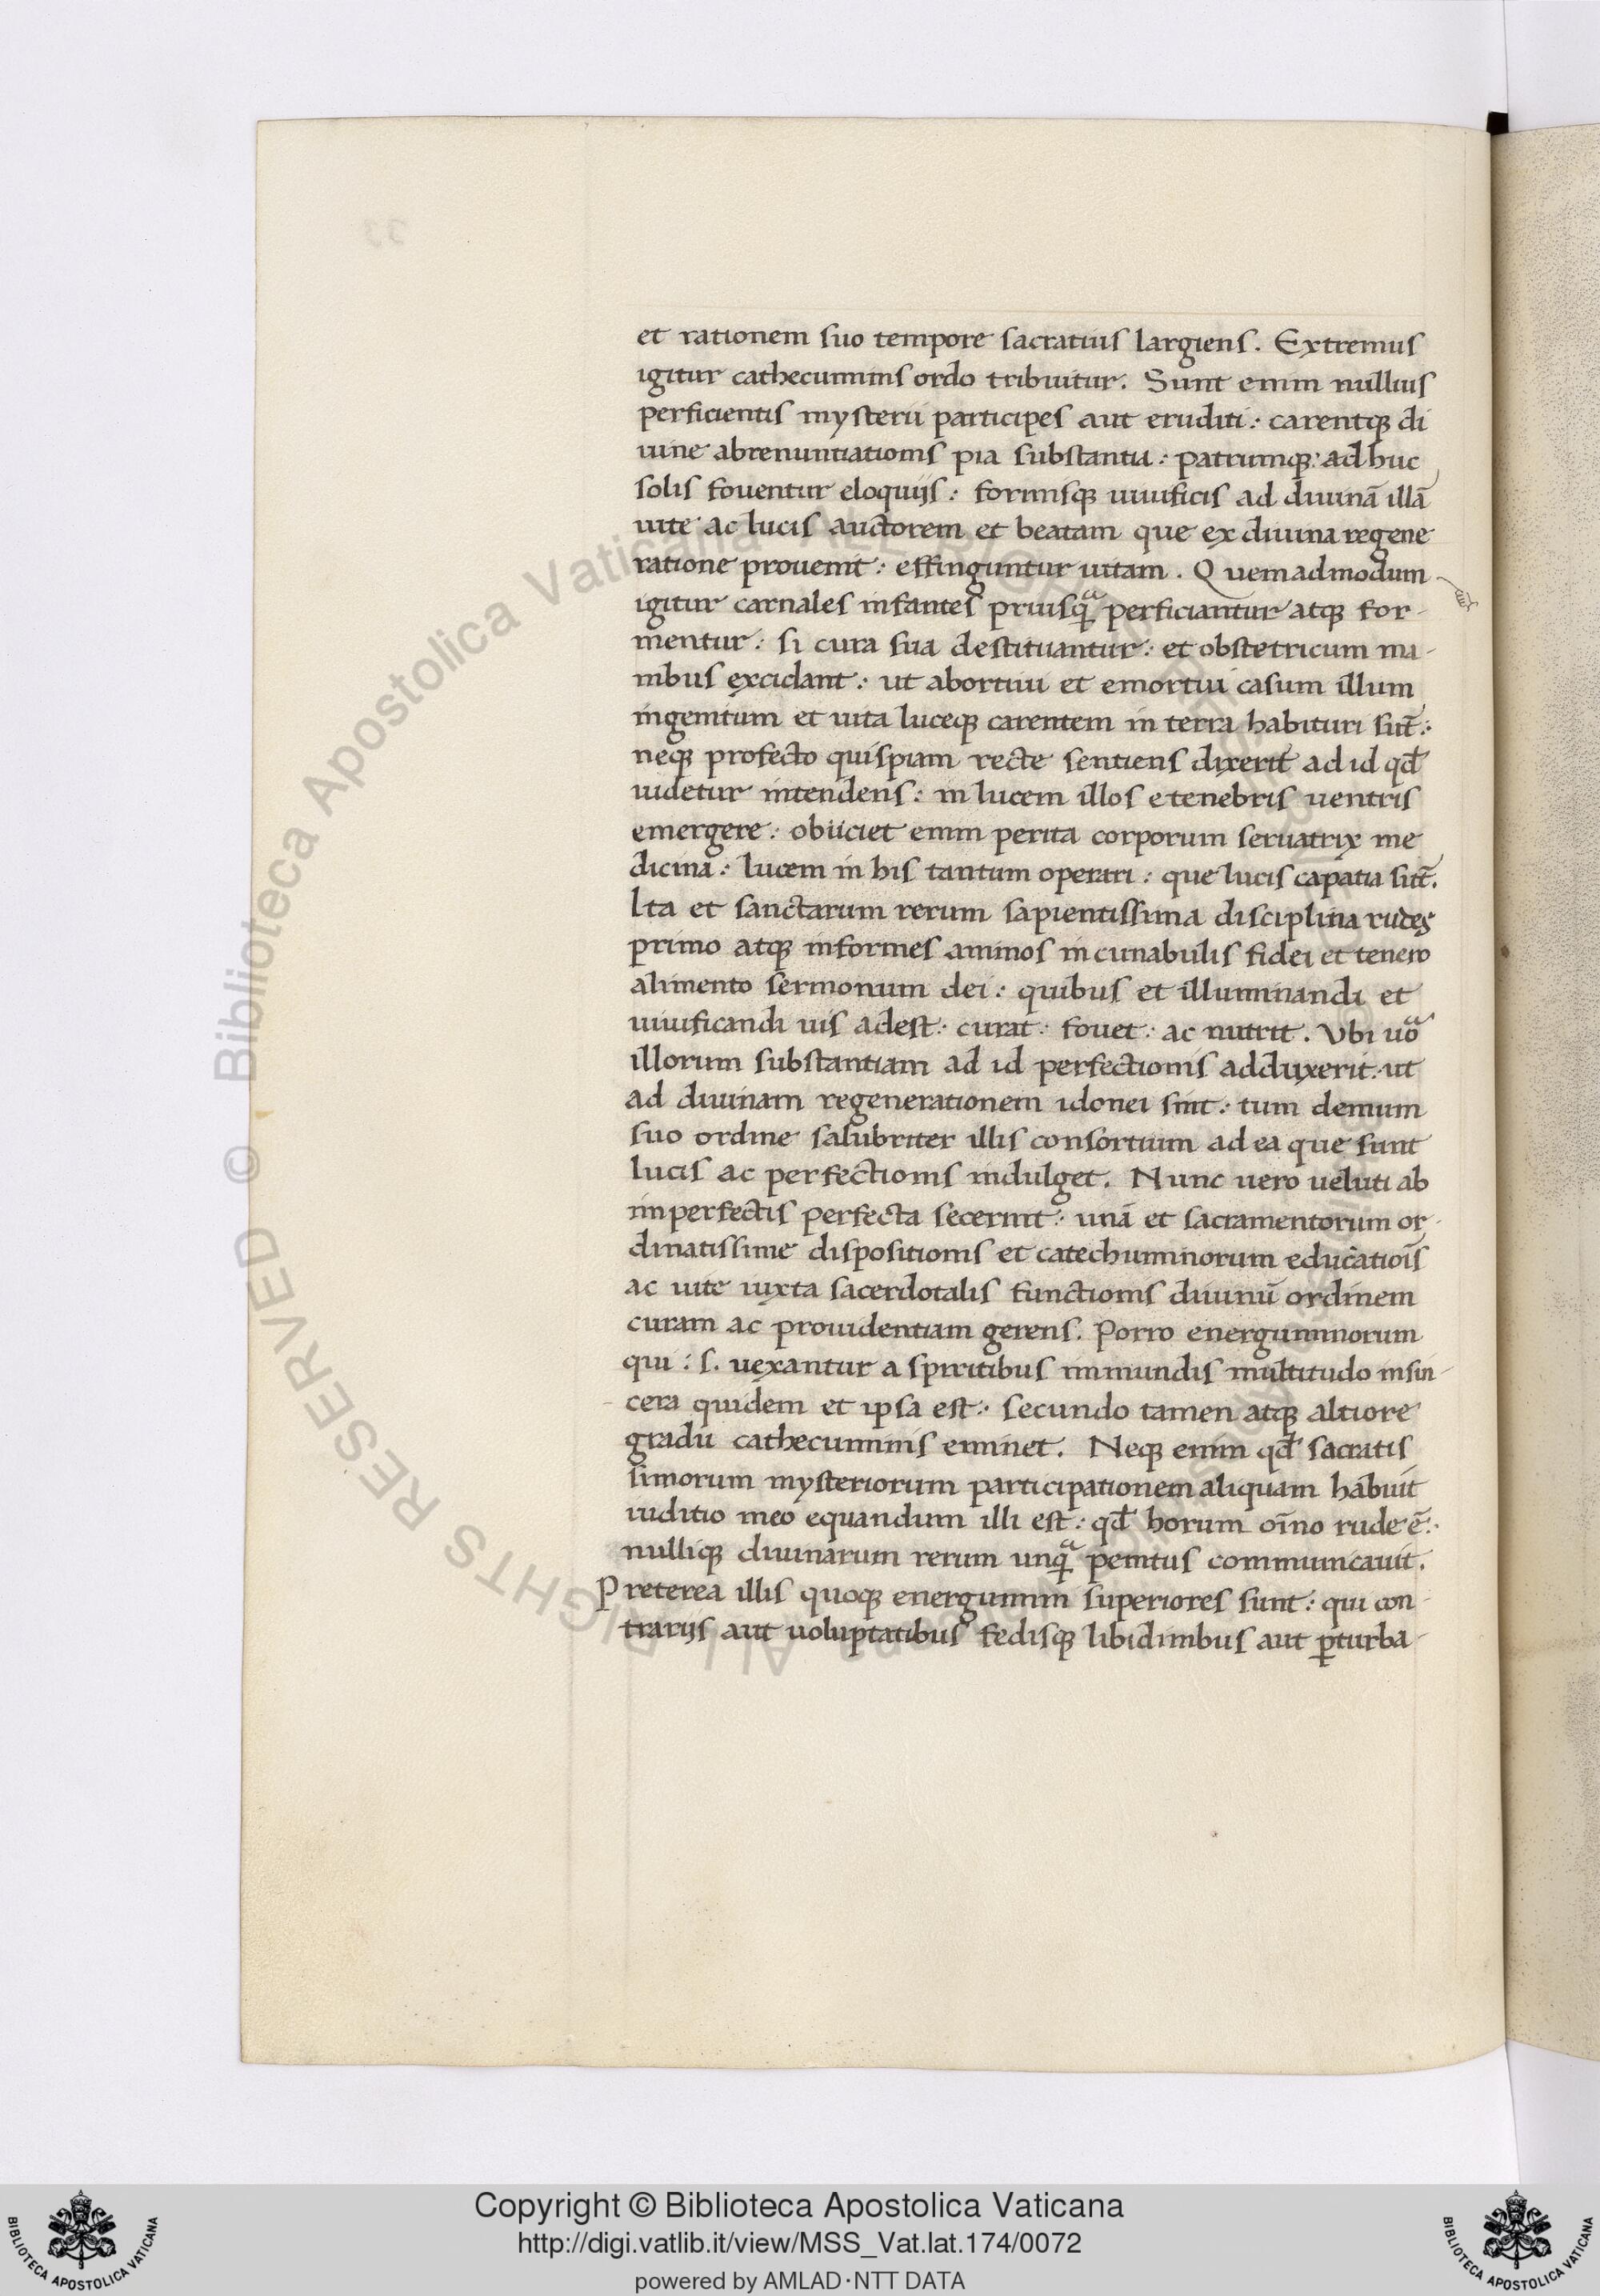 et rationem suo tempore sacratius largiens. Extremus
igitur cathecuminis ordo tribuitur. Sunt enim nullius
perficientis mysterii participes aut eruditi: carentq; di
uine abrenuntiationis pia substantia: patrumq;: adhuc
solis fouentur eloquijs: formisq; uiuificis ad diuinā illā
uite ac lucis auctorem et beatam que ex diuina regene
ratione prouenit: effinguntur uitam. Quemadmodum
igitur carnales infantes priusq̄ perficiantur atq; for-
mentur: si cura sua destituantur: et obstetricum ma-
nibus excidant: ut abortiui et emortui casum illum
ingenitum et uita luceq; carentem in terra habituri sūt:
neq; profecto quispiam recte sentiens dixerit ad id qđ
uidetur intendens: in lucem illos e tenebris uentris
emergere: obiiciet enim perita corporum seruatrix me
dicina: lucem in his tantum operari: que lucis capatia sūt.
Ita et sanctarum rerum sapientissima disciplina rudes
primo atq; informes animos incunabulis fidei et tenero
alimento sermonum dei: quibus et illuminandi et
uiuificandi uis adest: curat: fouet: ac nutrit. Vbi uō
illorum substantiam ad id perfectionis adduxerit: ut
ad diuinam regenerationem idonei sint: tum demum
suo ordine salubriter illis consortium ad ea que sunt
lucis ac perfectionis indulget. Nunc uero ueluti ab
imperfectis perfecta secernit: unā et sacramentorum or-
dinatissime dispositionis et catechuminorum educatiōis
ac uite iuxta sacerdotalis functionis diuinū ordinem
curam ac prouidentiam gerens. Porro energuminorum
qui: s. uexantur a spiritibus immundis multitudo insin-
cera quidem et ipsa est: secundo tamen atq; altiore
gradu cathecuminis eminet. Neq; enim qđ sacratis
simorum mysteriorum participationem aliquam habuit
iuditio meo equandum illi est: qđ horum oīno rude ē:
nulliq; diuinarum rerum unq̄ penitus communicauit.
Preterea illis quoq; energumini superiores sunt: qui con-
trarijs aut uoluptatibus fedisq; libidinibus aut p̱turba-
Copyright © Biblioteca Apostolica Vaticana
http://digi.vatlib.it/view/MSS_Vat.lat.174/0072
powered by AMLAD·NTT DATA